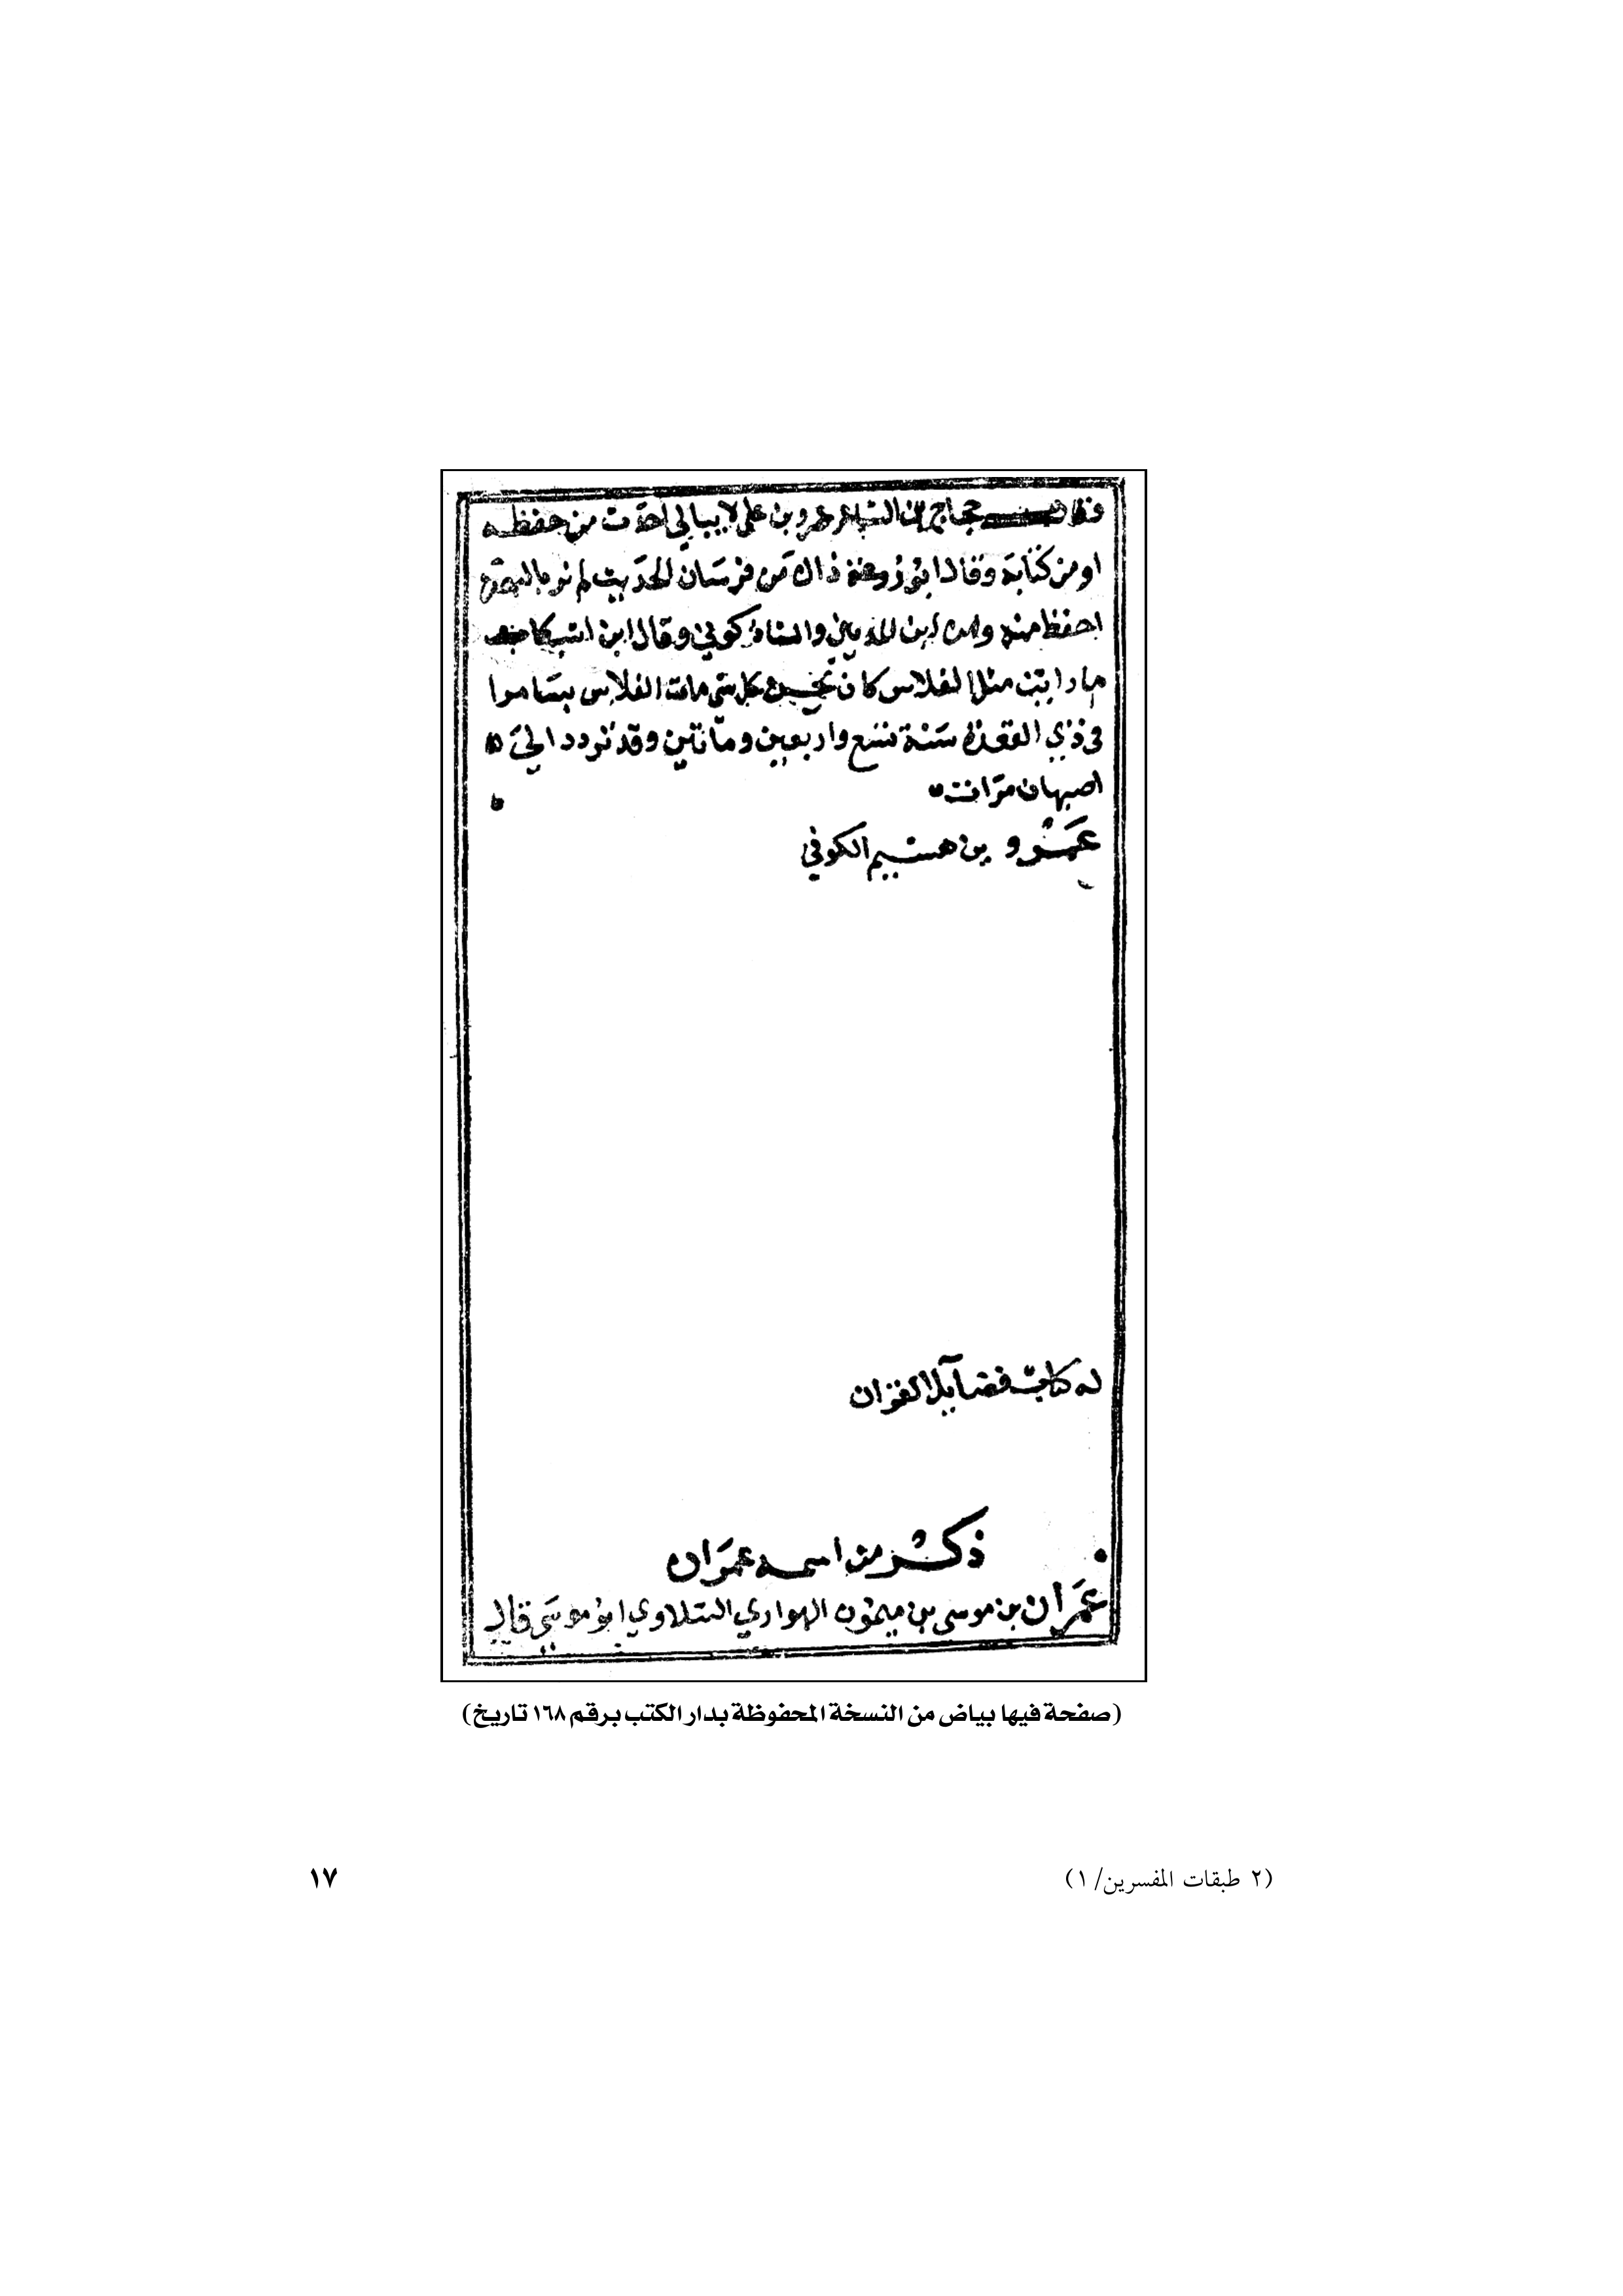 حجاج بن الشاعر عمرو بن علي لا يبالي احدث من حفظه
او من كتابه وقال ابو زرعة ذاك من فرسان الحديث لم نر بالبصرة
احفظ منه ومن ابن المديني والشاذكوني وقال ابن اشكاب
ما رايت مثل الفلاس كان يحسن كل شي مات الفلاس بسامرا
في ذي القعدة سنة تسع واربعين وماتين وقد تردد الى
اصبهان مرات
عمرو بن هشيم الكوفي
له كتاب فضآيل القران
ذكر من اسمه عمران
عمران بن موسى بن ميمون الهواري السلاوي ابو موسى قال
(صفحة فيها بياض من النسخة المحفوظة بدار الكتب برقم ١٦٨ تاريخ)
(٢ طبقات المفسرين/ ١)
١٧